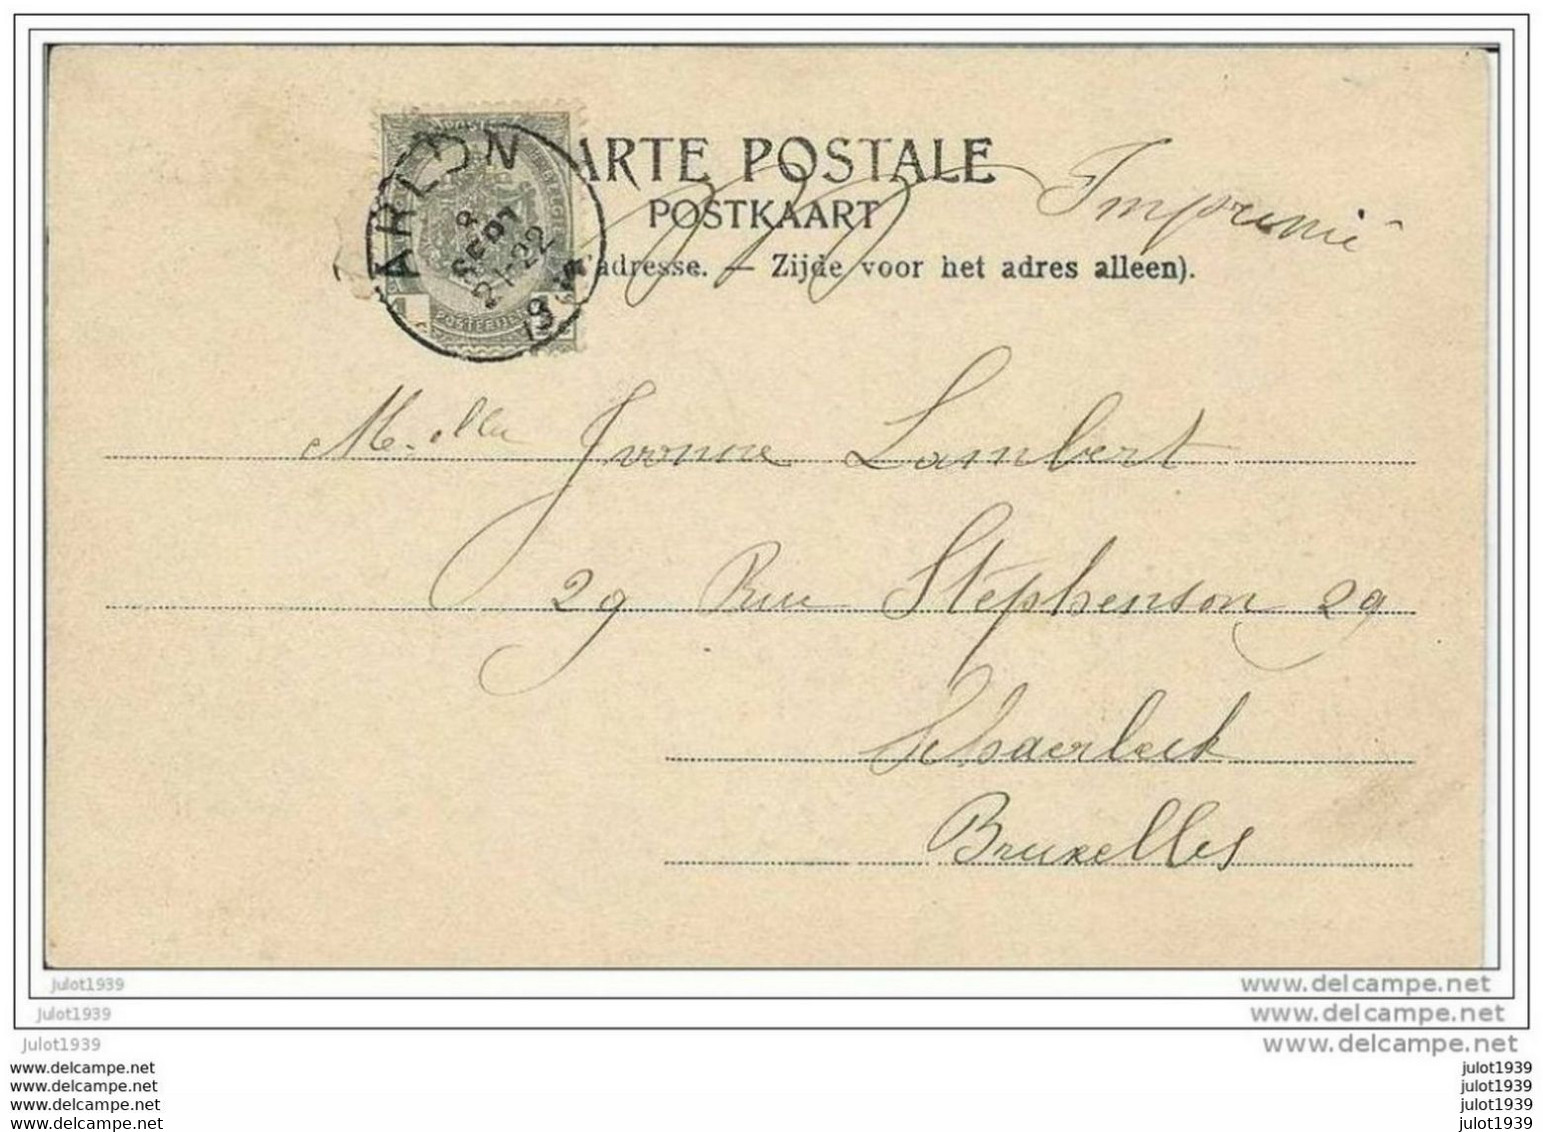 ARTE POSTALE
POSTKAART
l'adresse. — Zijde voor het adres alleen).
Imprimé
ARLON
8
SEPT
21-22
POSTERIJEN
M.elle Yvonne Lambert
29 Rue Stéphenson 29
Schaerbeek
Bruxelles
julot1939
www.delcampe.net
julot1939
www.delcampe.net
julot1939
www.delcampe.net
www.delcampe.net
julot1939
www.delcampe.net
julot1939
www.delcampe.net
julot1939
www.delcampe.net
julot1939